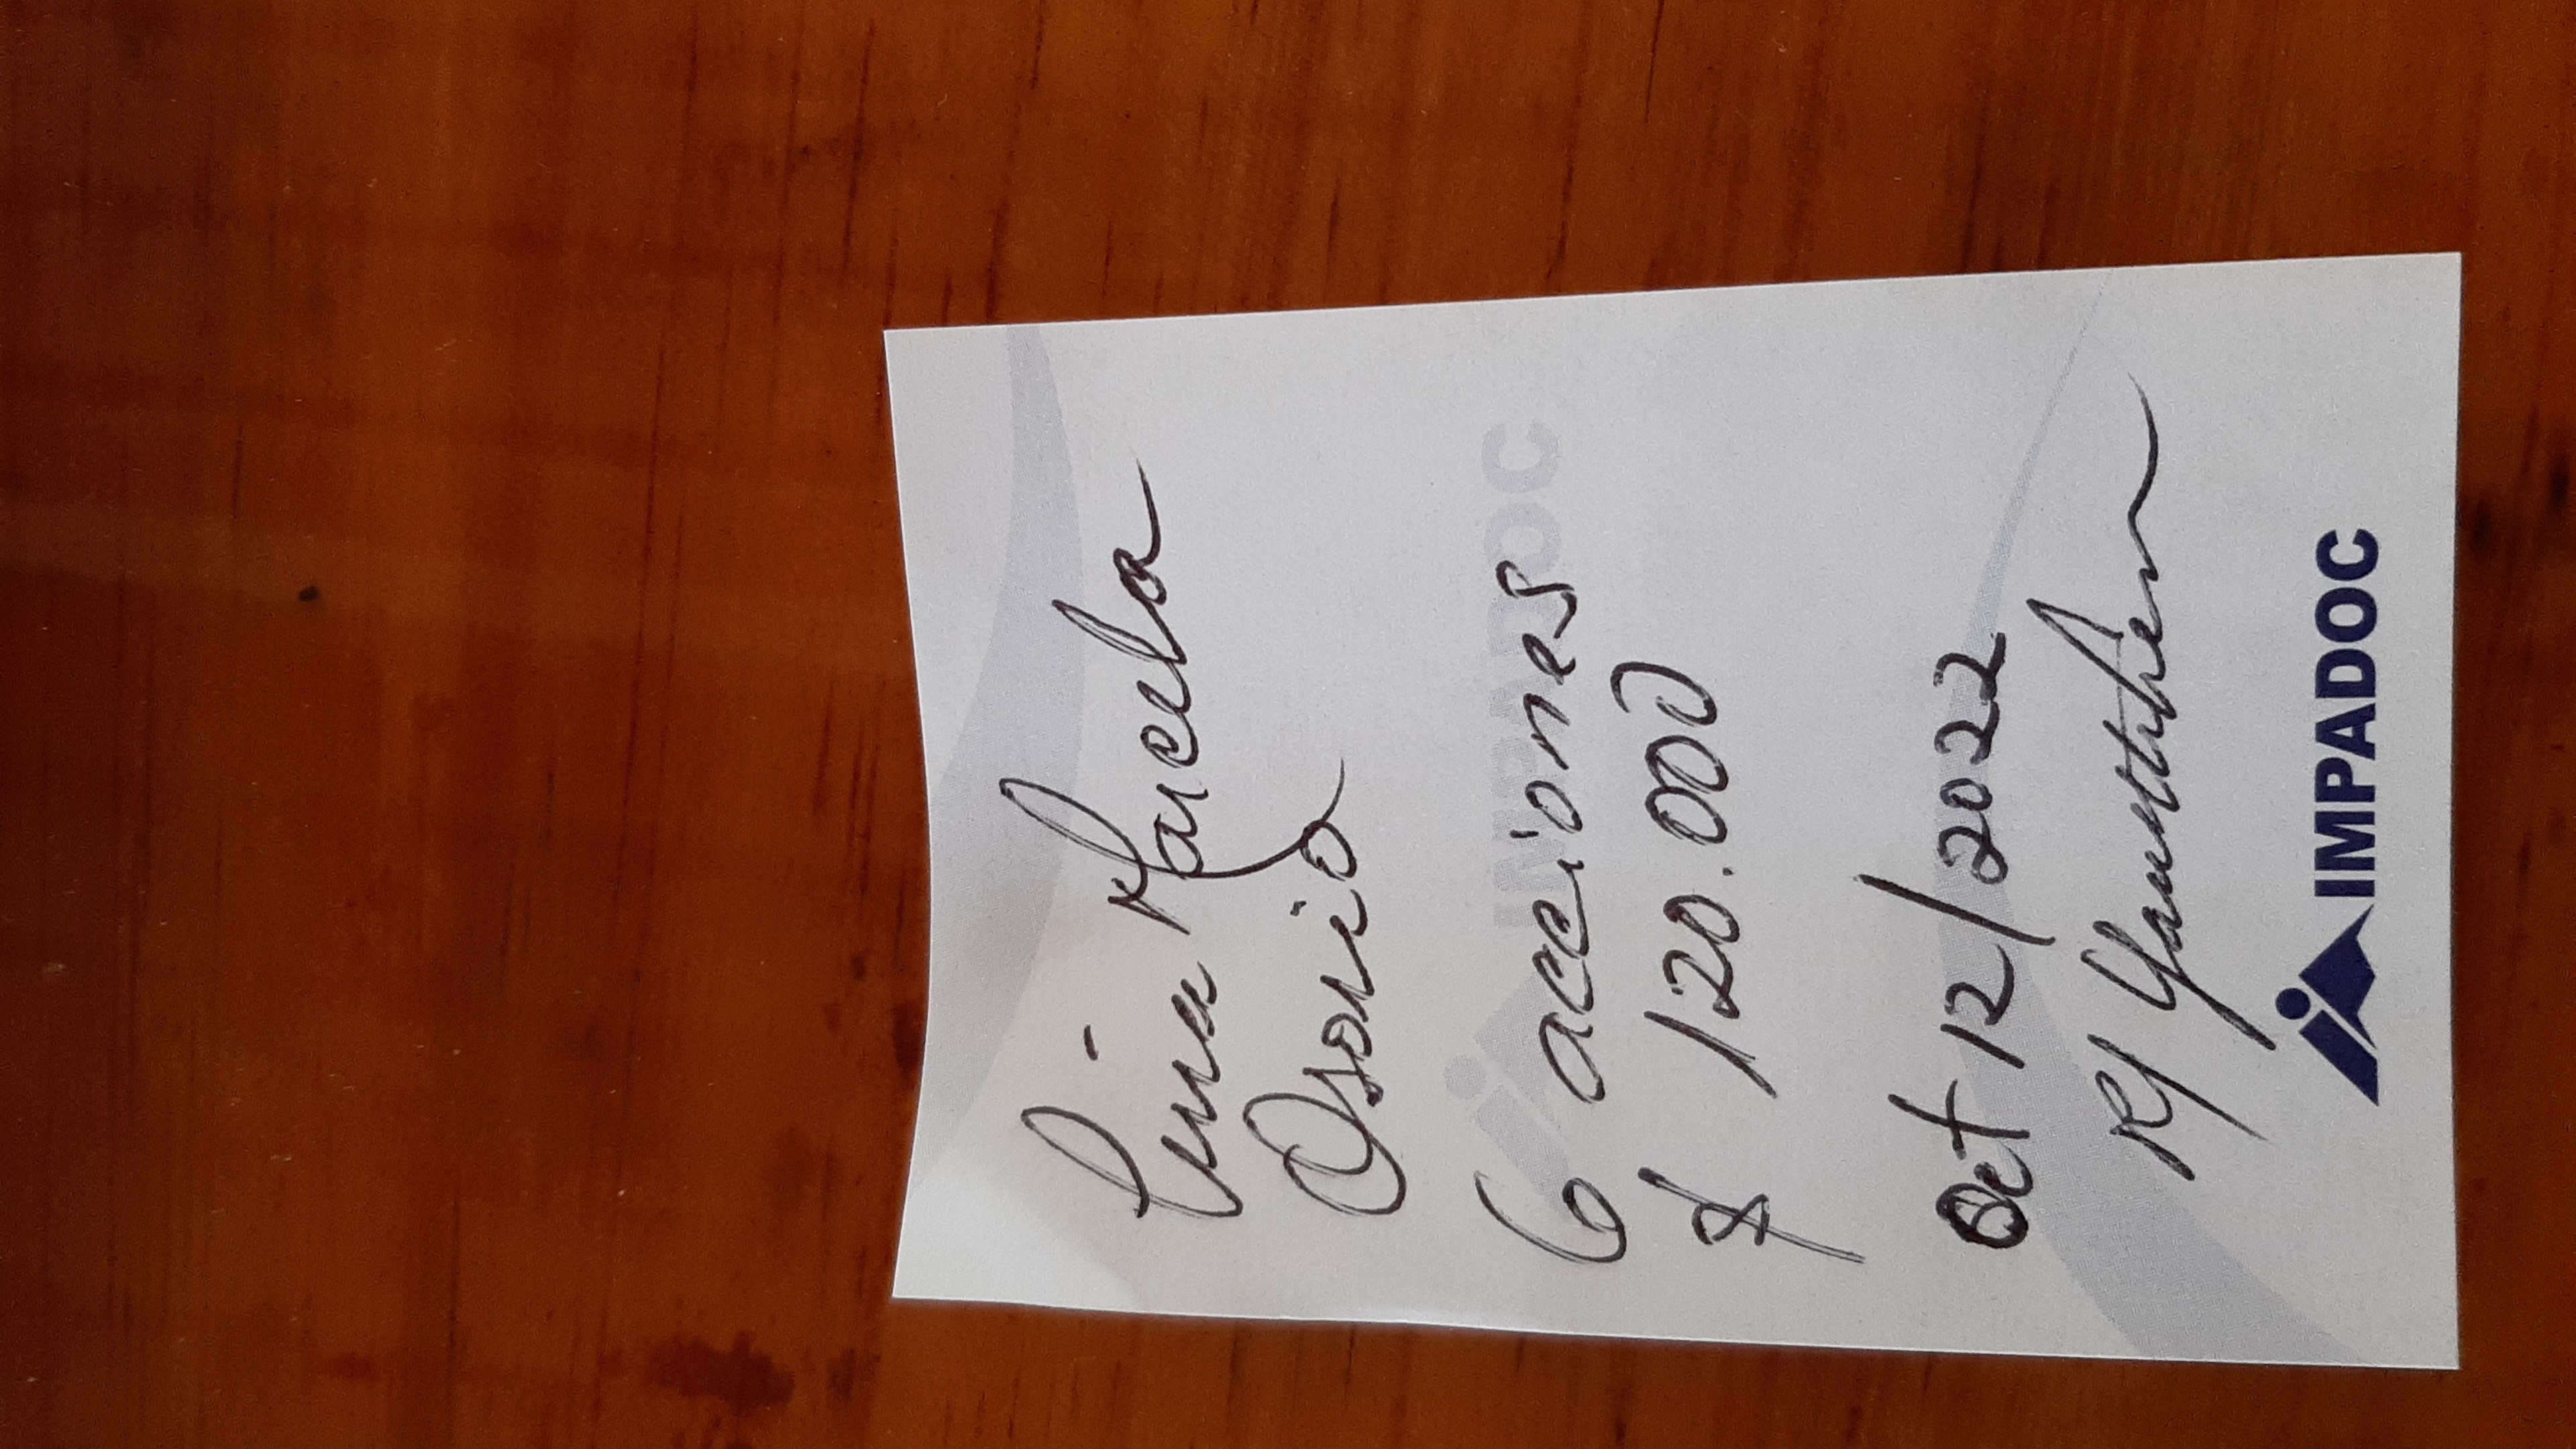 Lina Marcela
Osorio
IMPADOC
6 acciones
$ 120.000
Oct 12/2022
IMPADOC